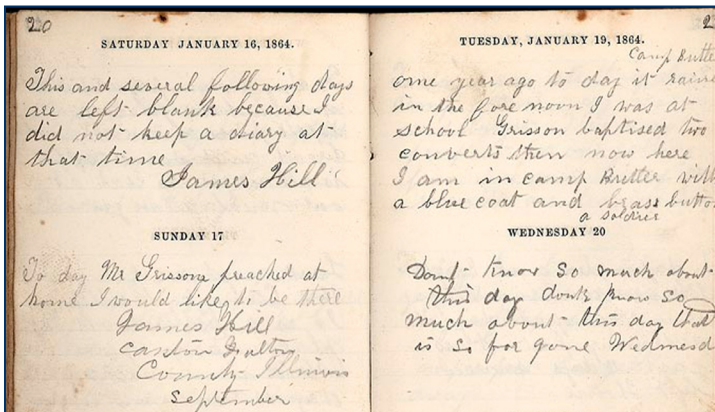 20
SATURDAY JANUARY 16, 1864.
This and several following days
are left blank because I
did not keep a diary at
that time
James Hill
SUNDAY 17
To day Mr Grissom preached at
home I would like to be there
James Hill
Canton Fulton
County Illinois
September
2
TUESDAY, JANUARY 19, 1864.
Camp Butle
ome year ago to day it raine
in the fore noon I was at
school Grisson baptised two
converts then now here
I am in camp Butler with
a blue coat and brass button
a soldier
WEDNESDAY 20
Dont know so much about
this day dont know so
much about this day that
is so far gone Wednesd